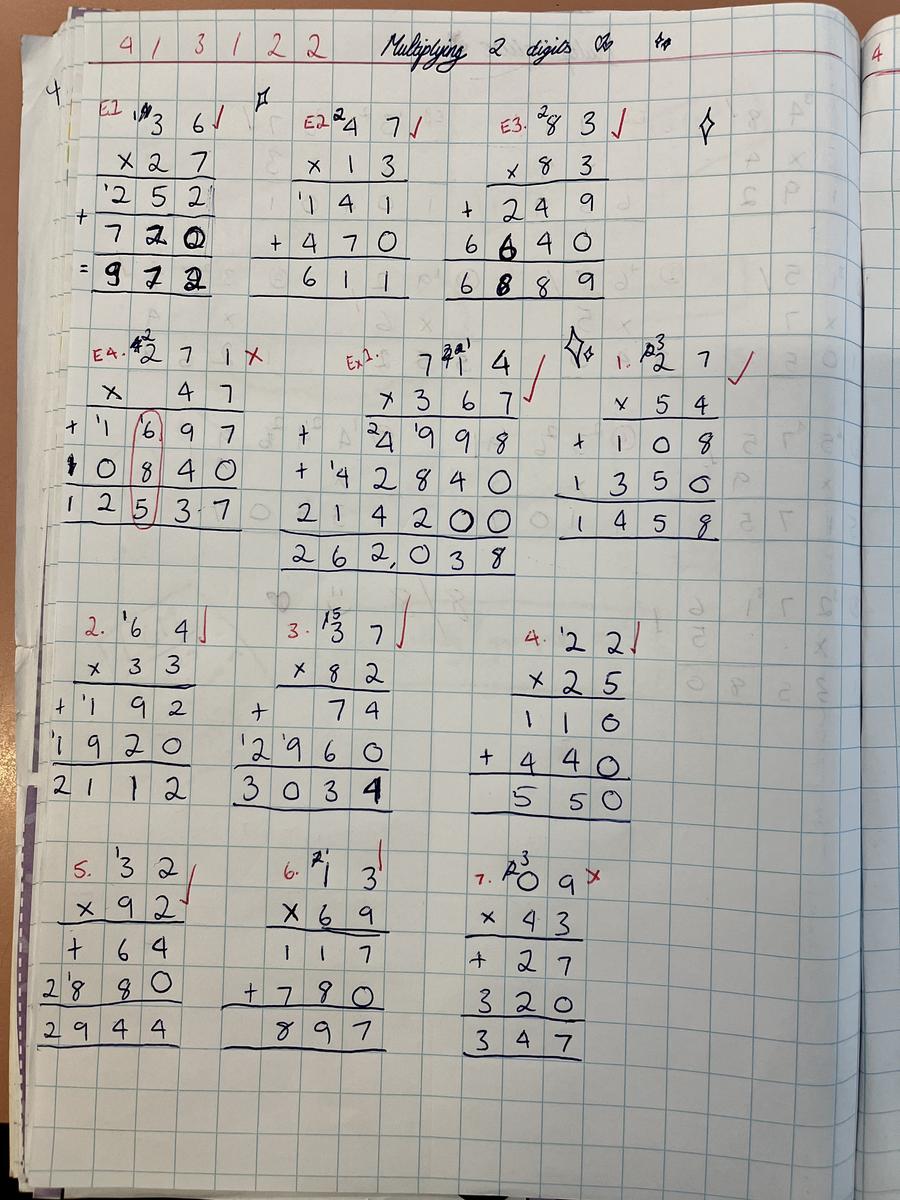 4 1 3 1 2 2 Multiplying 2 digits
4
E1 3 6 ✓
x 2 7
2 5 2
+
7 2 0
= 9 7 2
E2 2 4 7 ✓
x 1 3
1 1 4 1
+ 4 7 0
6 1 1
E3. 2 8 3 ✓
x 8 3
+ 2 4 9
6 6 4 0
6 8 8 9
E4. 2 2 7 1 x
x 4 7
+ 1 1 1 6 9 7
1 0 8 4 0
1 2 5 3 7
Ex1. 7 1 4 ✓
x 3 6 7
+ 2 4 1 9 9 8
+ 1 4 2 8 4 0
2 1 4 2 0 0
2 6 2,0 3 8
1. 3 2 7 ✓
x 5 4
+ 1 0 8
1 3 5 0
1 4 5 8
2. 1 6 4 ✓
x 3 3
+ 1 1 9 2
1 1 9 2 0
2 1 1 2
3. 1 5 3 7 ✓
x 8 2
+ 7 4
1 2 1 9 6 0
3 0 3 4
4. 1 2 2 ✓
x 2 5
1 1 0
+ 4 4 0
5 5 0
5. 1 3 2 ✓
x 9 2
+ 6 4
2 1 8 8 0
2 9 4 4
6. 2 1 1 3 ✓
x 6 9
1 1 7
+ 7 8 0
8 9 7
7. 2 3 0 9 x
x 4 3
+ 2 7
3 2 0
3 4 7